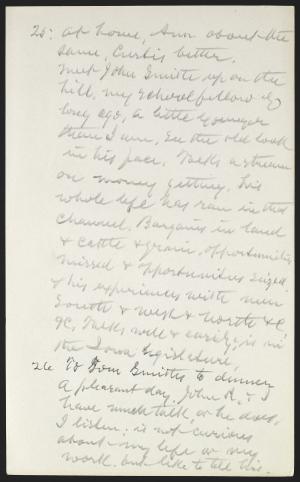 25; At home, Ann about the
same, Curtis better.
Meet John Smith up on the
hill, my schoolfellow of
long ago, a little younger
than I am, See the old look
in his face. Talks a stream
on money getting. His
whole life has ran in that
channel, Bargains in land
& cattle & grain, opportunities
missed & opportunities seized.
& his experiences with men
South & West & North &c,
&c, Talks well & easily, is in
the Iowa legislature.
26 To Tom Smiths to dinner
A pleasant day, John R. & I
have much talk, or he does,
I listen; is not curious
about my life or my
work, but like to tell his.